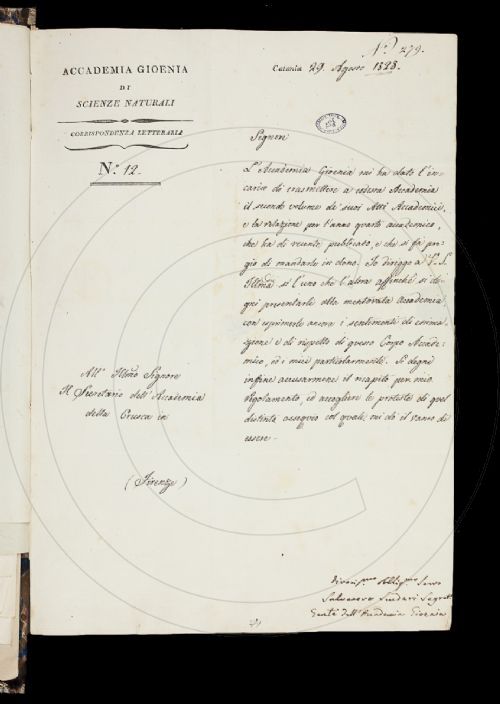 N.° 279.
ACCADEMIA GIOENIA
DI
SCIENZE NATURALI
CORRISPONDENZA LETTERARIA
N.° 12.
Catania 29. Agosto 1828.
Signore
L'Accademia Gioenia mi ha dato l'in-
carico di trasmettere a codesta Accademia
il secondo volume de' suoi Atti Accademici,
e la relazione per l'anno quarto accademico,
che ha di recente pubblicato, e che si fa pre-
gio di mandarle in dono. Io dirigo a V. S.
Illma si l'uno che l'altra affinchè si de-
gni presentarle alla mentovata Accademia
con esprimerle ancora i sentimenti di estima-
zione e di rispetto di questo Corpo Accade-
mico, ed i miei particolarmente. Si degni
infine accusarmene il recapito per mio
regolamento, ed accogliere le proteste di quel
distinto ossequio col quale mi do il vanto di
essere.
All' Illmo Signore
Il Secretario dell'Accademia
della Crusca in
(Firenze)
Divotmo Obbligmo Servo
Salvatore Scuderi Segret.
Genle dell'Accademia Gioenia